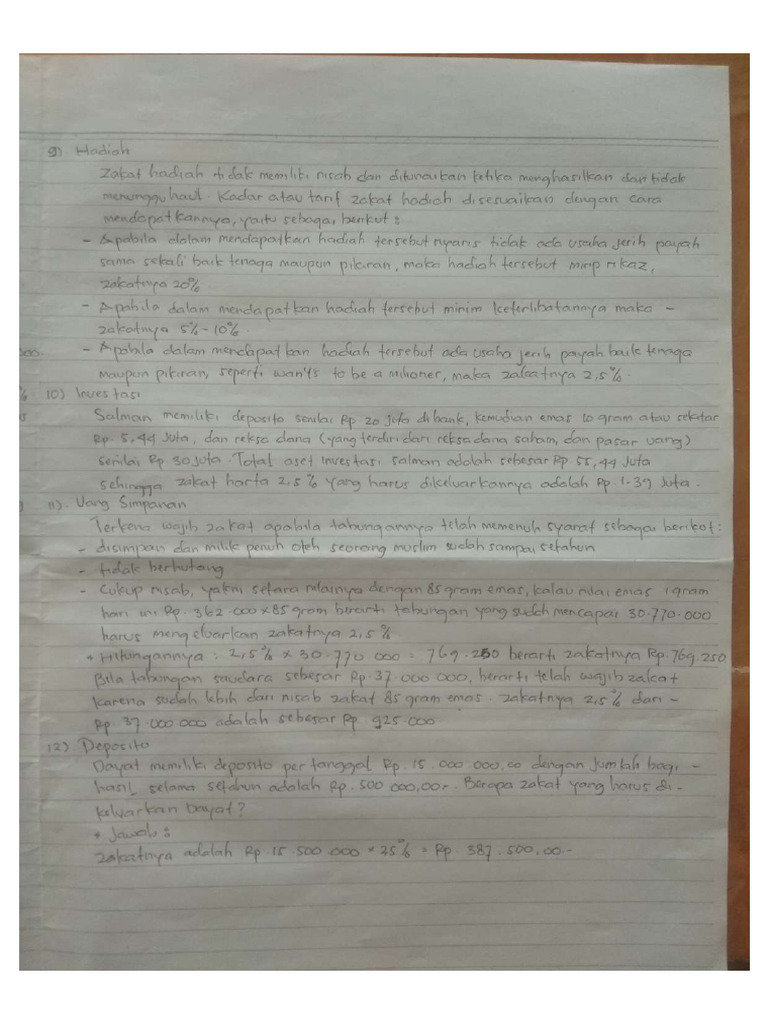 9). Hadiah
Zakat hadiah tidak memiliki nisab dan ditunaikan ketika menghasilkan dan tidak
menunggu haul. Kadar atau tarif zakat hadiah disesuaikan dengan cara
mendapatkannya, yaitu sebagai berikut :
- Apabila dalam mendapatkan hadiah tersebut nyaris tidak ada usaha jerih payah
sama sekali baik tenaga maupun pikiran, maka hadiah tersebut mirip rikaz,
zakatnya 20%.
- Apabila dalam mendapatkan hadiah tersebut minim keterlibatannya maka -
zakatnya 5% - 10%
- Apabila dalam mendapatkan hadiah tersebut ada usaha jerih payah baik tenaga
maupun pikiran, seperti wan'ts to be a milioner, maka zakatnya 2,5%.
10) Investasi
Salman memiliki deposito senilai Rp. 20 Juta di bank, kemudian emas 10 gram atau sekitar
Rp. 5,44 Juta, dan reksa dana (yang terdiri dari reksadana saham, dan pasar uang)
senilai Rp 30 Juta. Total aset investasi salman adalah sebesar Rp 55,44 Juta
sehingga zakat harta 2,5% yang harus dikeluarkannya adalah Rp. 1.39 Juta.
11). Uang Simpanan
Terkena wajib zakat apabila tabungannya telah memenuhi syarat sebagai berikut :
- disimpan dan milik penuh oleh seorang muslim sudah sampai setahun
- tidak berhutang
- Cukup nisab, yakni setara nilainya dengan 85 gram emas, kalau nilai emas 1 gram
hari ini Rp. 362.000 x 85 gram berarti tabungan yang sudah mencapai 30.770.000
harus mengeluarkan zakatnya 2,5%
* Hitungannya : 2,5% x 30.770 000 = 769.250 berarti zakatnya Rp. 769.250
Bila tabungan saudara sebesar Rp. 37.000 000, berarti telah wajib zakat
karena sudah lebih dari nisab zakat 85 gram emas. zakatnya 2,5% dari -
Rp. 37 000 000 adalah sebesar Rp. 925 000
12) Deposito
Dayat memiliki deposito per tanggal Rp. 15 .000 000,00 dengan jumlah bagi -
hasil selama setahun adalah Rp. 500 000,00-. Berapa zakat yang harus di -
keluarkan Dayat ?
* Jawab :
Zakatnya adalah Rp. 15.500 000 x 25% = Rp. 387.500,00.-